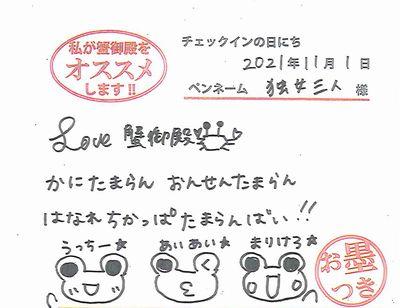 私が蟹御殿を
オススメ
します!!
チェックインの日にち
2021年11月1日
ペンネーム 独女三人 様
Love 蟹御殿
かにたまらん おんせんたまらん
はなれちかっぱたまらんばい!!
うっちー★ あいあい★ まりけろ★
お墨
つき